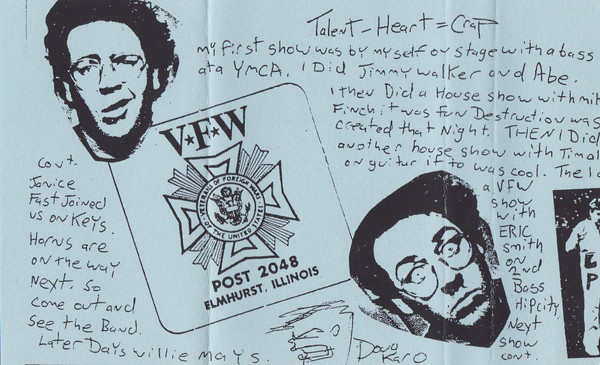 Talent - Heart = Crap
my first show was by my self on stage with a bass
at a YMCA. I Did Jimmy walker and Abe.
I then Did a House show with
Finch it was fun Destruction was
created that Night. THEN I Did
another house show with
on guitar it to was cool. The
a VFW
show
with
ERIC
smith
on
2nd
Bass
Hipcity
Next
show
cont.
cont.
Janice
Fast Joined
us on Keys.
Horns are
on the way
Next. So
come out and
see the Band.
Later Days willie mays.
V★F★W
VETERANS OF FOREIGN WARS
OF THE UNITED STATES
POST 2048
ELMHURST, ILLINOIS
Doug
Karo